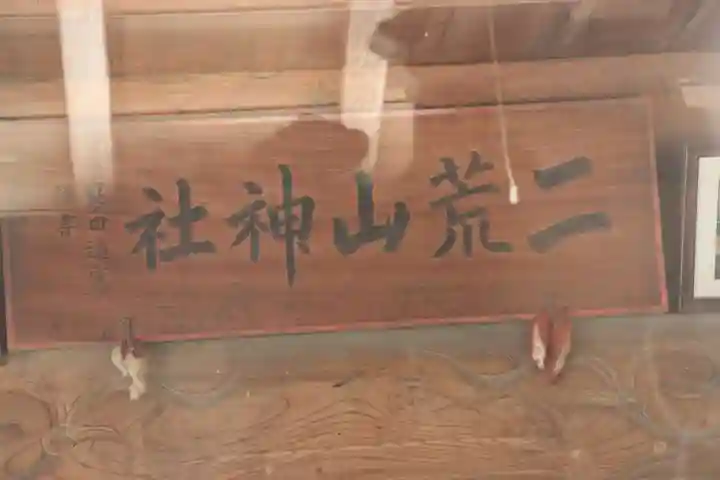 二荒山神社